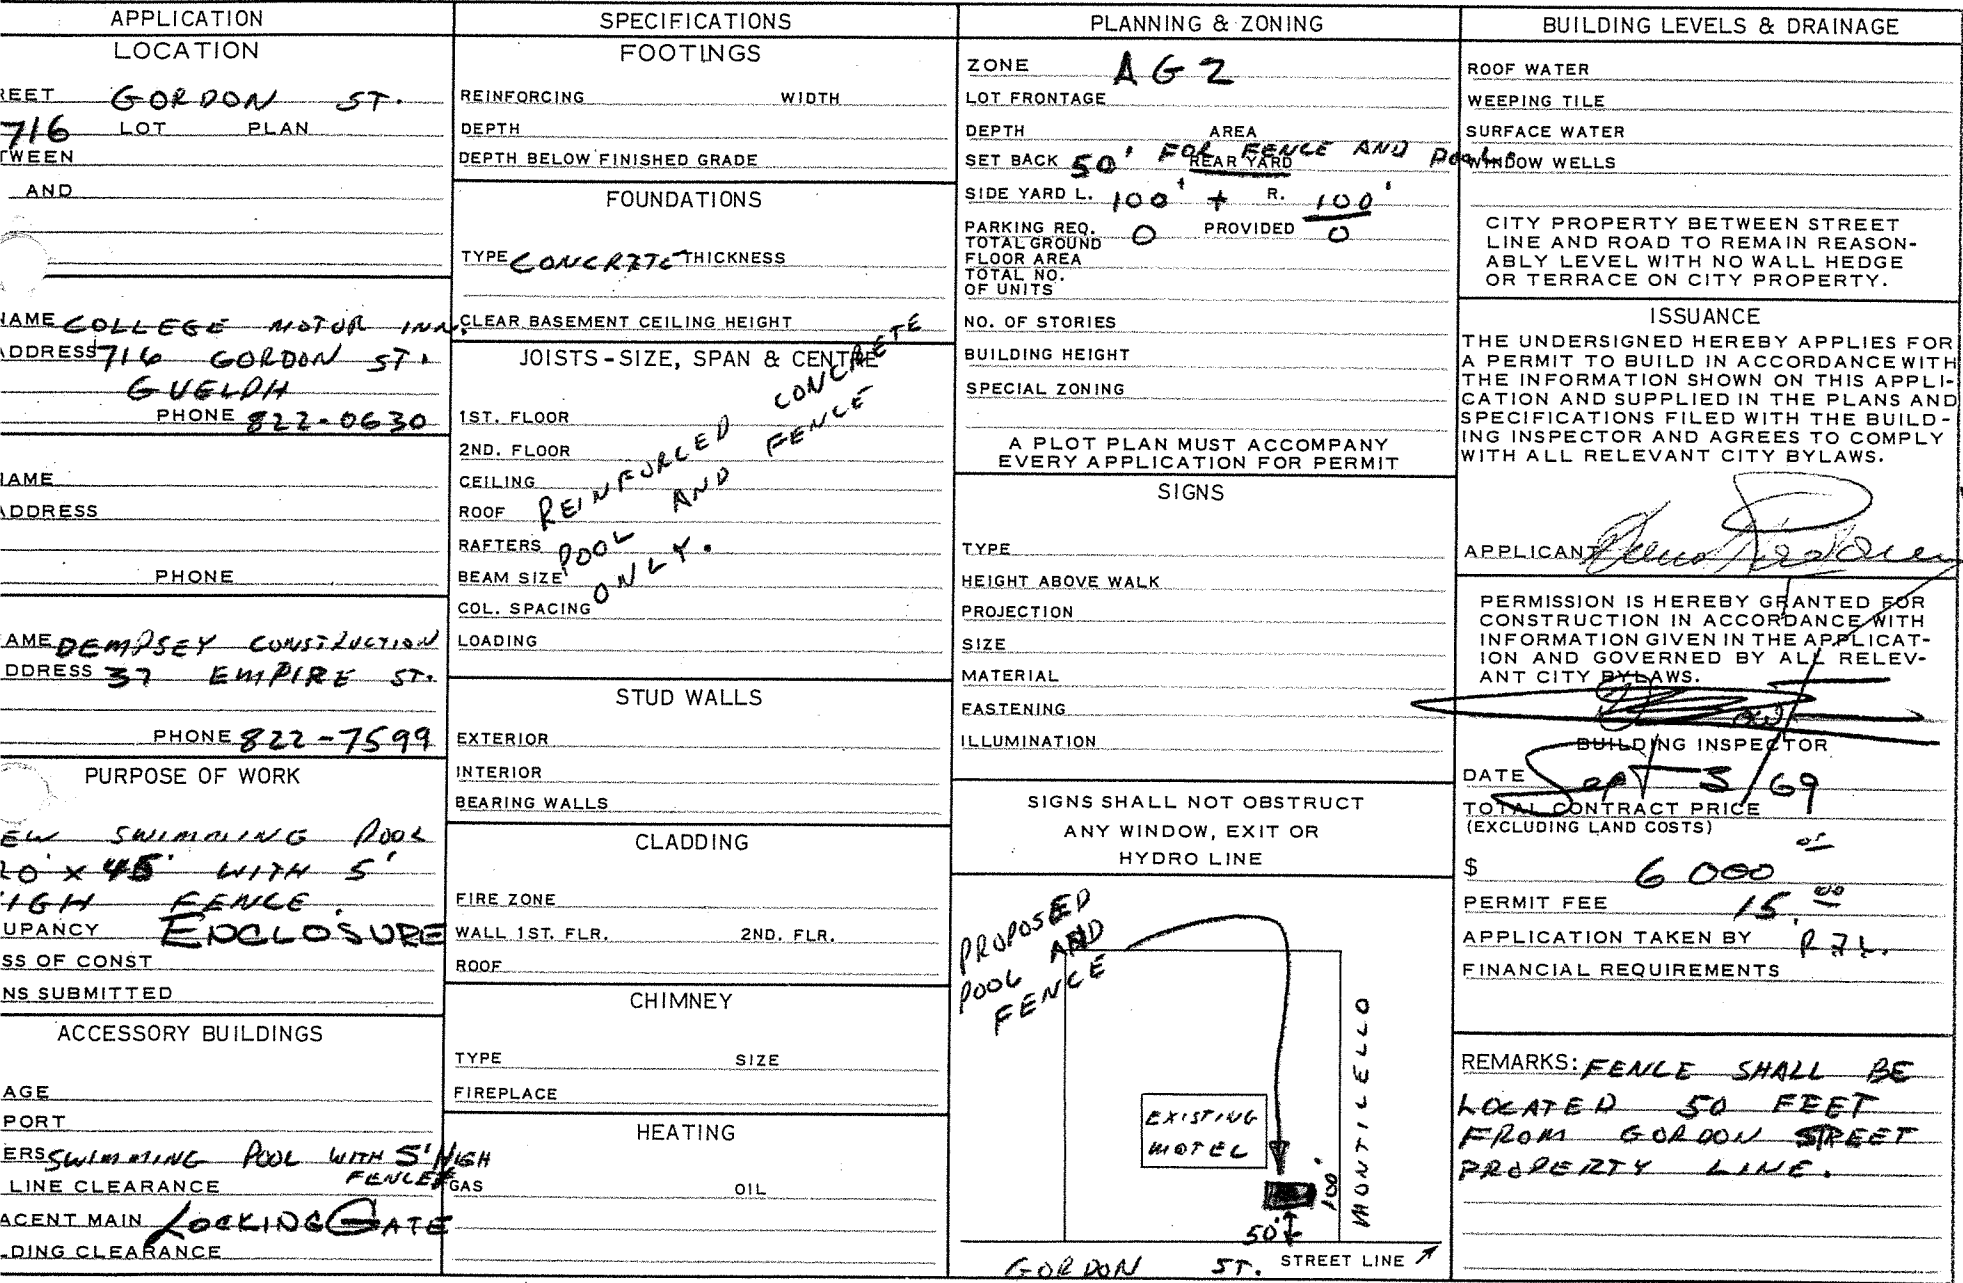 APPLICATION
LOCATION
REET GORDON ST.
716 LOT PLAN
TWEEN
AND
NAME COLLEGE MOTOR INN.
ADDRESS 716 GORDON ST.
GUELPH
PHONE 822-0630
NAME
ADDRESS
PHONE
AME DEMPSEY CONSTRUCTION
DDRESS 37 EMPIRE ST.
PHONE 822-7599
PURPOSE OF WORK
EW SWIMMING POOL
20' x 45' WITH 5'
HIGH FENCE.
UPANCY ENCLOSURE
SS OF CONST
NS SUBMITTED
ACCESSORY BUILDINGS
AGE
PORT
ERS SWIMMING POOL WITH 5' HIGH
FENCE
LINE CLEARANCE
ACENT MAIN LOCKING GATE
DING CLEARANCE
SPECIFICATIONS
FOOTINGS
REINFORCING WIDTH
DEPTH
DEPTH BELOW FINISHED GRADE
FOUNDATIONS
TYPE CONCRETE THICKNESS
CLEAR BASEMENT CEILING HEIGHT
JOISTS - SIZE, SPAN & CENTRE
1ST. FLOOR
2ND. FLOOR
CEILING
ROOF
RAFTERS
BEAM SIZE
COL. SPACING
LOADING
REINFORCED CONCRETE
POOL AND FENCE
ONLY.
STUD WALLS
EXTERIOR
INTERIOR
BEARING WALLS
CLADDING
FIRE ZONE
WALL 1ST. FLR. 2ND. FLR.
ROOF
CHIMNEY
TYPE SIZE
FIREPLACE
HEATING
GAS OIL
PLANNING & ZONING
ZONE AG2
LOT FRONTAGE
DEPTH AREA
SET BACK 50' FOR FENCE AND POOL.
REAR YARD
SIDE YARD L. 100' + R. 100'
PARKING REQ. 0 PROVIDED 0
TOTAL GROUND
FLOOR AREA
TOTAL NO.
OF UNITS
NO. OF STORIES
BUILDING HEIGHT
SPECIAL ZONING
A PLOT PLAN MUST ACCOMPANY
EVERY APPLICATION FOR PERMIT
SIGNS
TYPE
HEIGHT ABOVE WALK
PROJECTION
SIZE
MATERIAL
FASTENING
ILLUMINATION
SIGNS SHALL NOT OBSTRUCT
ANY WINDOW, EXIT OR
HYDRO LINE
PROPOSED
POOL AND
FENCE
EXISTING
MOTEL
MONTICELLO
100'
50'
GORDON ST. STREET LINE
BUILDING LEVELS & DRAINAGE
ROOF WATER
WEEPING TILE
SURFACE WATER
WINDOW WELLS
CITY PROPERTY BETWEEN STREET
LINE AND ROAD TO REMAIN REASON-
ABLY LEVEL WITH NO WALL HEDGE
OR TERRACE ON CITY PROPERTY.
ISSUANCE
THE UNDERSIGNED HEREBY APPLIES FOR
A PERMIT TO BUILD IN ACCORDANCE WITH
THE INFORMATION SHOWN ON THIS APPLI-
CATION AND SUPPLIED IN THE PLANS AND
SPECIFICATIONS FILED WITH THE BUILD-
ING INSPECTOR AND AGREES TO COMPLY
WITH ALL RELEVANT CITY BYLAWS.
APPLICANT
PERMISSION IS HEREBY GRANTED FOR
CONSTRUCTION IN ACCORDANCE WITH
INFORMATION GIVEN IN THE APPLICAT-
ION AND GOVERNED BY ALL RELEV-
ANT CITY BYLAWS.
BUILDING INSPECTOR
DATE Sept 3/69
TOTAL CONTRACT PRICE
(EXCLUDING LAND COSTS)
$ 6000
PERMIT FEE 15.00
APPLICATION TAKEN BY
FINANCIAL REQUIREMENTS
REMARKS: FENCE SHALL BE
LOCATED 50 FEET
FROM GORDON STREET
PROPERTY LINE.